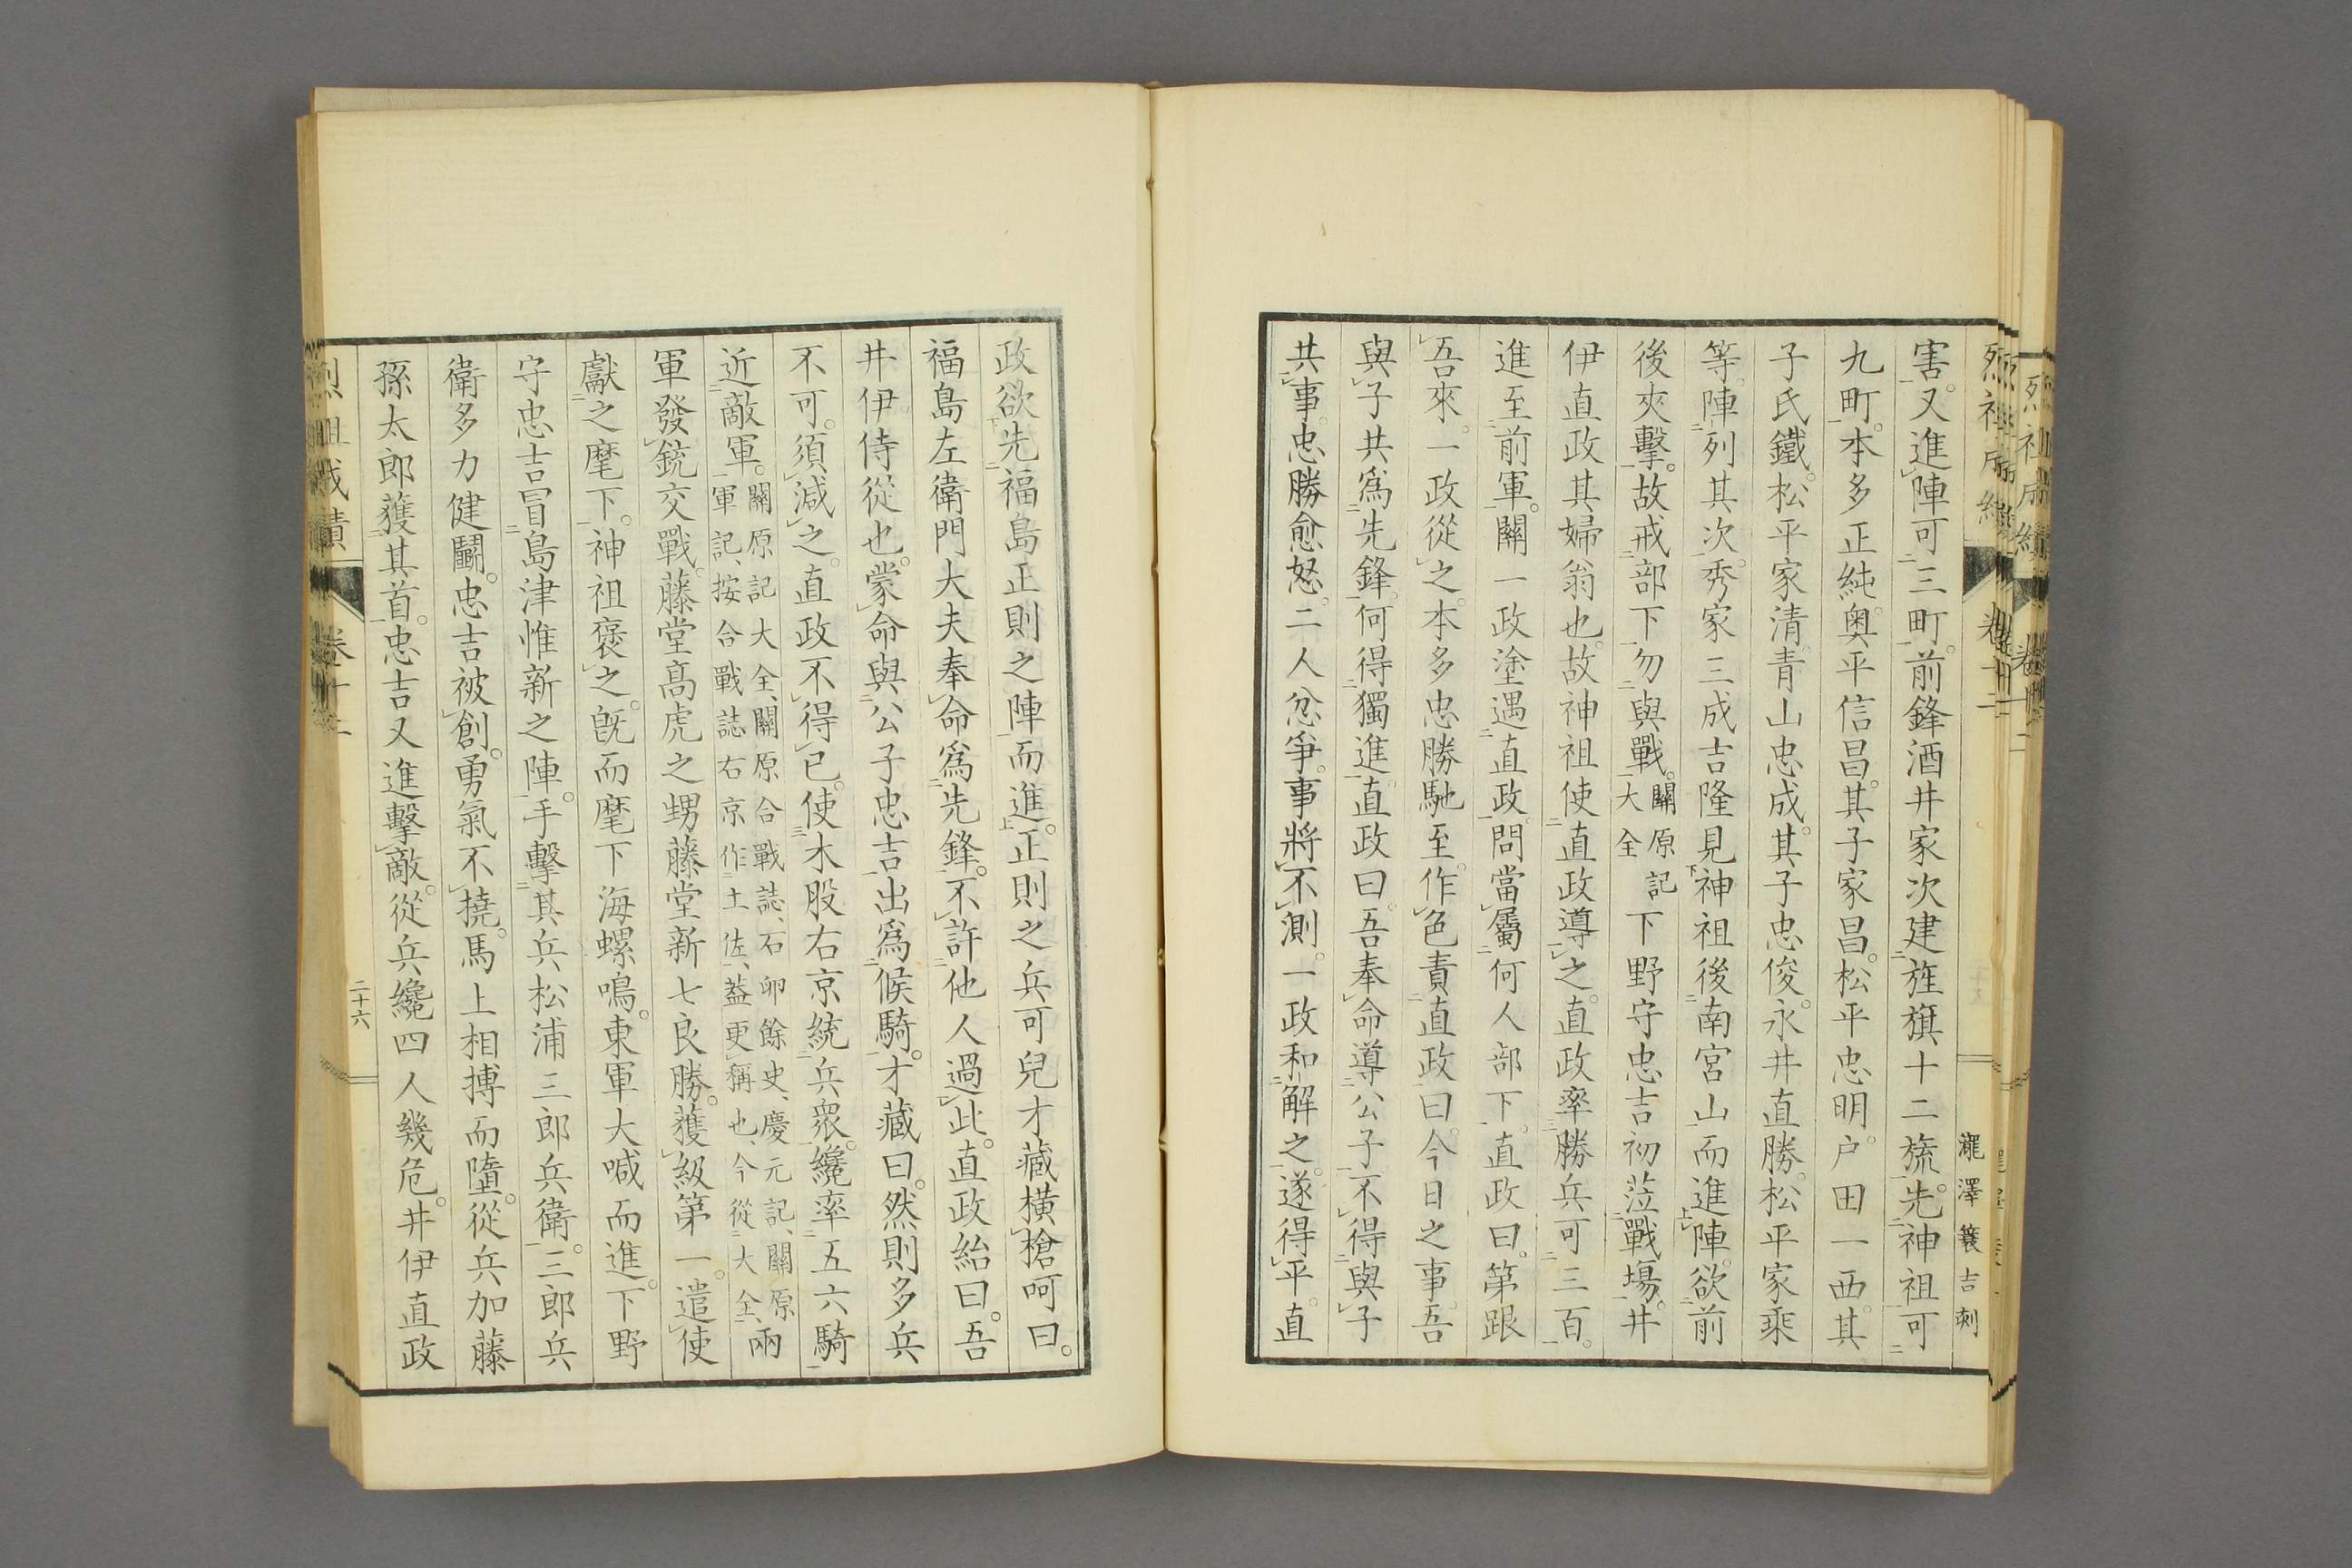 害又進陣可三町前鋒酒井家次建旌旗十二旒先神祖可
九町本多正純奧平信昌其子家昌松平忠明户田一西其
子氏鐵松平家清青山忠成其子忠俊永井直勝松平家乘
等陣列其次秀家三成吉隆見神祖後南宮山而進陣欲前
後夾擊故戒部下勿與戰關原記大全下野守忠吉初蒞戰場井
伊直政其婦翁也故神祖使直政導之直政率勝兵可三百
進至前軍關一政塗遇直政問當屬何人部下直政曰第跟
吾來一政從之本多忠勝馳至作色責直政曰今日之事吾
與子共爲先鋒何得獨進直政曰吾奉命導公子不得與子
共事忠勝愈怒二人忿爭事將不測一政和解之遂得平直
瀧澤簑吉刺
政欲先福島正則之陣而進正則之兵可兒才藏橫槍呵曰
福島左衛門大夫奉命爲先鋒不許他人過此直政紿曰吾
井伊侍從也蒙命與公子忠吉出爲候騎才藏曰然則多兵
不可須減之直政不得已使木股右京統兵衆纔率五六騎
近敵軍關原記大全、關原合戰誌、石卯餘史、慶元記、關原軍記、按合戰誌右京作土佐、蓋更稱也、今從大全、兩
軍發銃交戰藤堂高虎之甥藤堂新七良勝獲級第一遣使
獻之麾下神祖褒之旣而麾下海螺鳴東軍大喊而進下野
守忠吉冒島津惟新之陣手擊其兵松浦三郎兵衛三郎兵
衛多力健鬭忠吉被創勇氣不撓馬上相搏而墮從兵加藤
孫太郎獲其首忠吉又進擊敵從兵纔四人幾危井伊直政
烈祖成績 卷十二
二十六